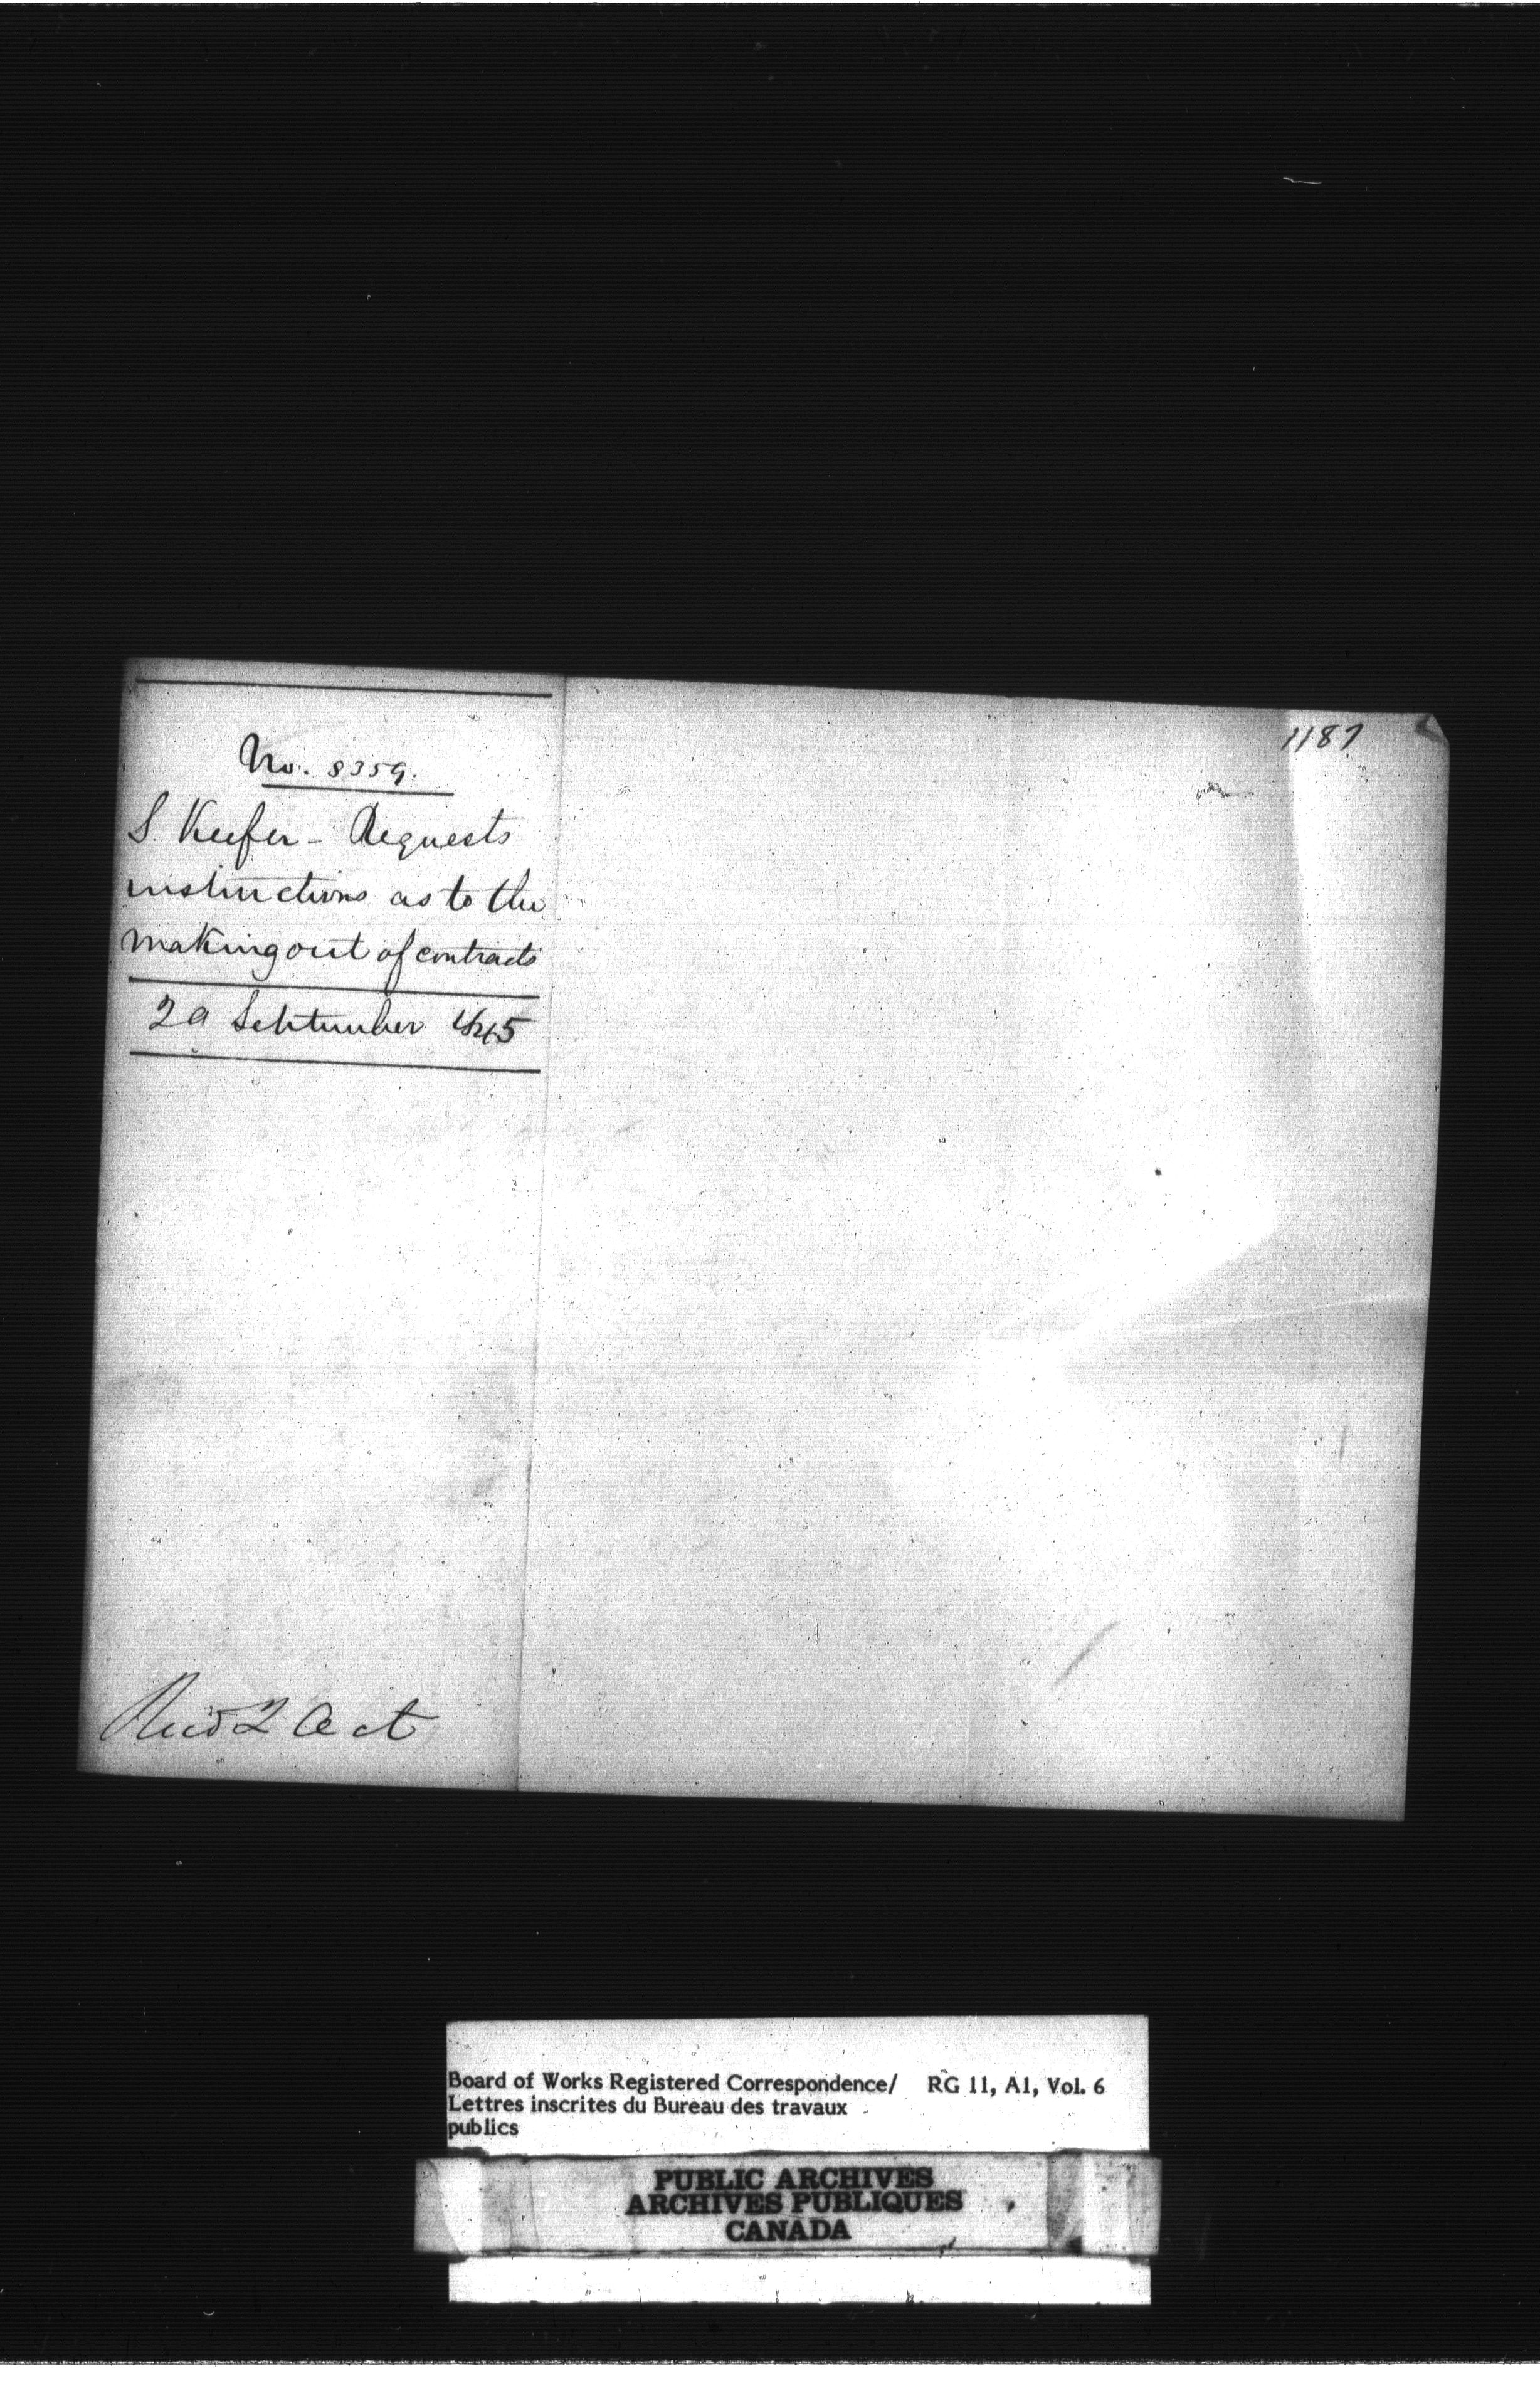 1187
No. 8359.
S. Keefer - Requests
instructions as to the
making out of contracts
29 September 1845
Recd 2 Oct
Board of Works Registered Correspondence/ RG 11, A1, Vol. 6
Lettres inscrites du Bureau des travaux
publics
PUBLIC ARCHIVES
ARCHIVES PUBLIQUES
CANADA